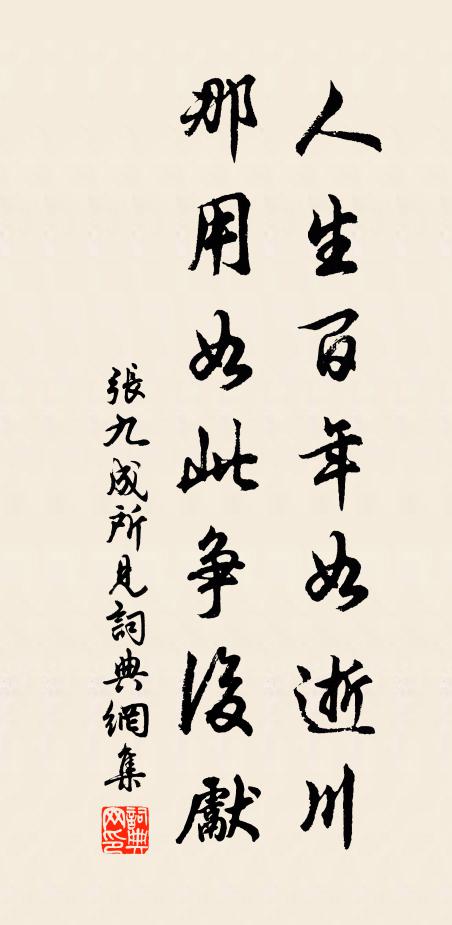 人生百年如逝川
那用如此争後獻
張九成所見詞典網集
詞典網印